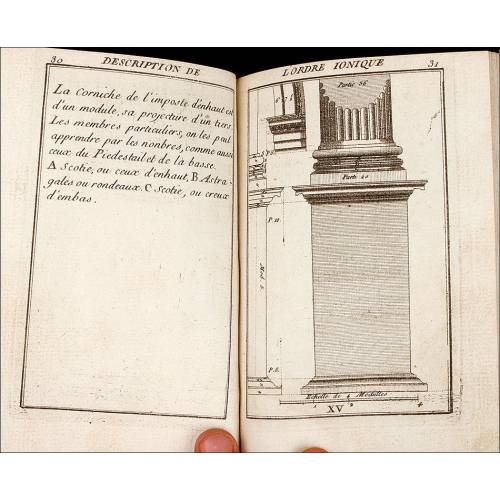 30
DESCRIPTION DE
La Corniche de l'imposte d'enhaut est
d'un module, sa projecture d'un tiers
Les membres particuliers, on les peut
apprendre par les nonbres, comme aussi
ceux du Piedestail et de la basse.
A Scotie, ou ceux d'enhaut, B. Astra-
gales ou rondeaux. C Scotie, ou creux
d'embas.
L'ORDRE IONIQUE
31
Partie 36
Parti
P. II
P. 6.
Echelle de 4 Modulles
XV